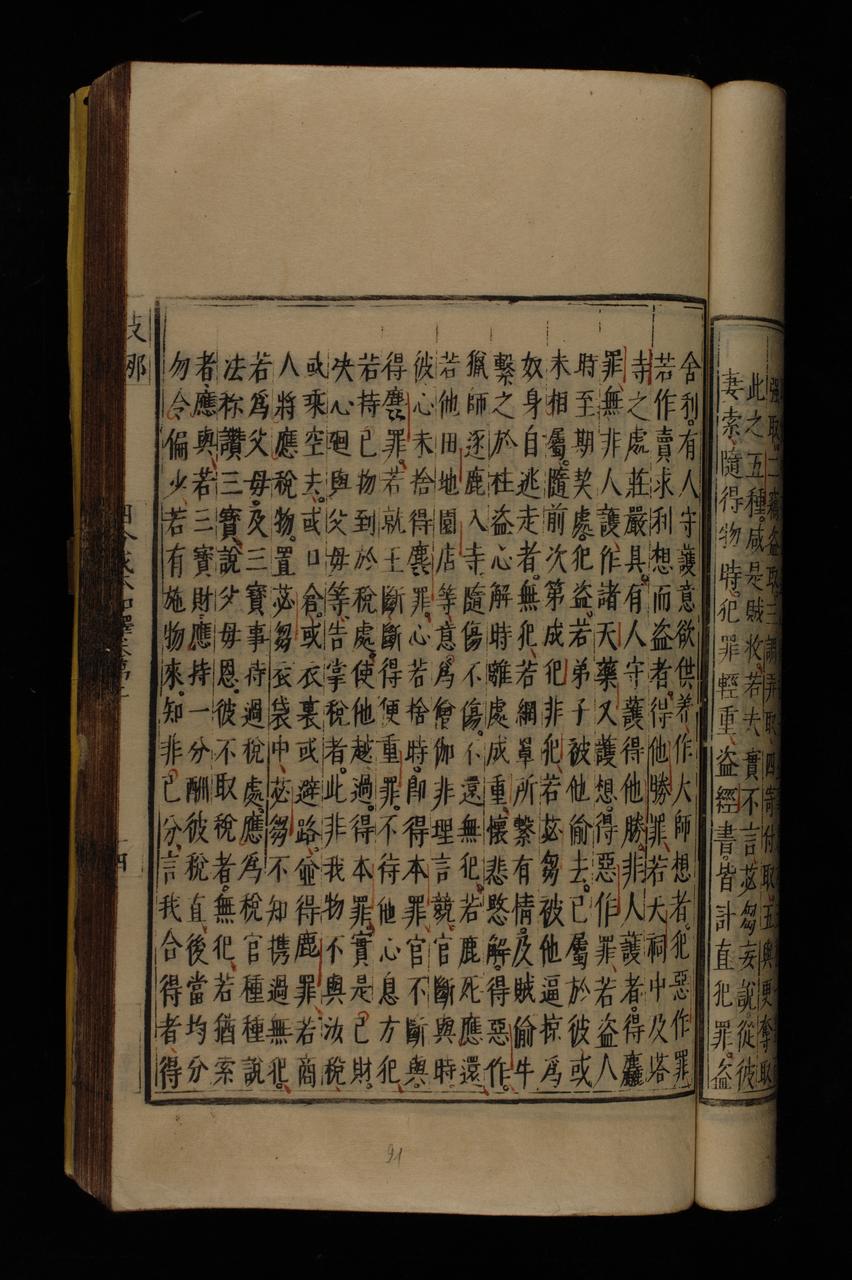 強取二竊盜取三調弄取四寄付取五與更奪取
此之五種咸是賊收若夫實不言苾芻妄說從彼
妻索隨得物時犯罪輕重盜經書皆計直犯罪盜
舍利有人守護意欲供養作大師想者犯惡作罪
若作賣求利想而盜者得他勝罪若天祠中及塔
寺之處莊嚴具有人守護得他勝非人護者得麤
罪無非人護作諸天藥叉護想得惡作罪若盜人
時至期契處犯盜若弟子被他偷去已屬於彼或
未相屬隨前次第成犯非犯若苾芻被他逼掠為
奴身自逃走者無犯若網罩所繫有情及賊偷牛
繫之於柱盜心解時離處成重懷悲愍解得惡作
獵師逐鹿入寺隨傷不傷不還無犯若鹿死應還
若他田地園店等意為僧伽非理言競官斷與時
彼心未捨得麤罪心若捨時即得本罪官不斷與
得麤罪若就王斷斷得便重罪不待他心息方犯
若持已物到於稅處使他越過得本罪實是已財
決心迴與父母等告掌稅者此非我物不與汝稅
或乘空去或口含或衣裹或避路並得麤罪若商
人將應稅物置苾芻衣袋中苾芻不知攜過無犯
若為父母及三寶事持過稅處應為稅官種種說
法称讚三寶說父母恩彼不取稅者無犯若猶索
者應與若三寶財應持一分酬彼稅直後當均分
勿令偏少若有施物來知非已分言我合得者得
支那